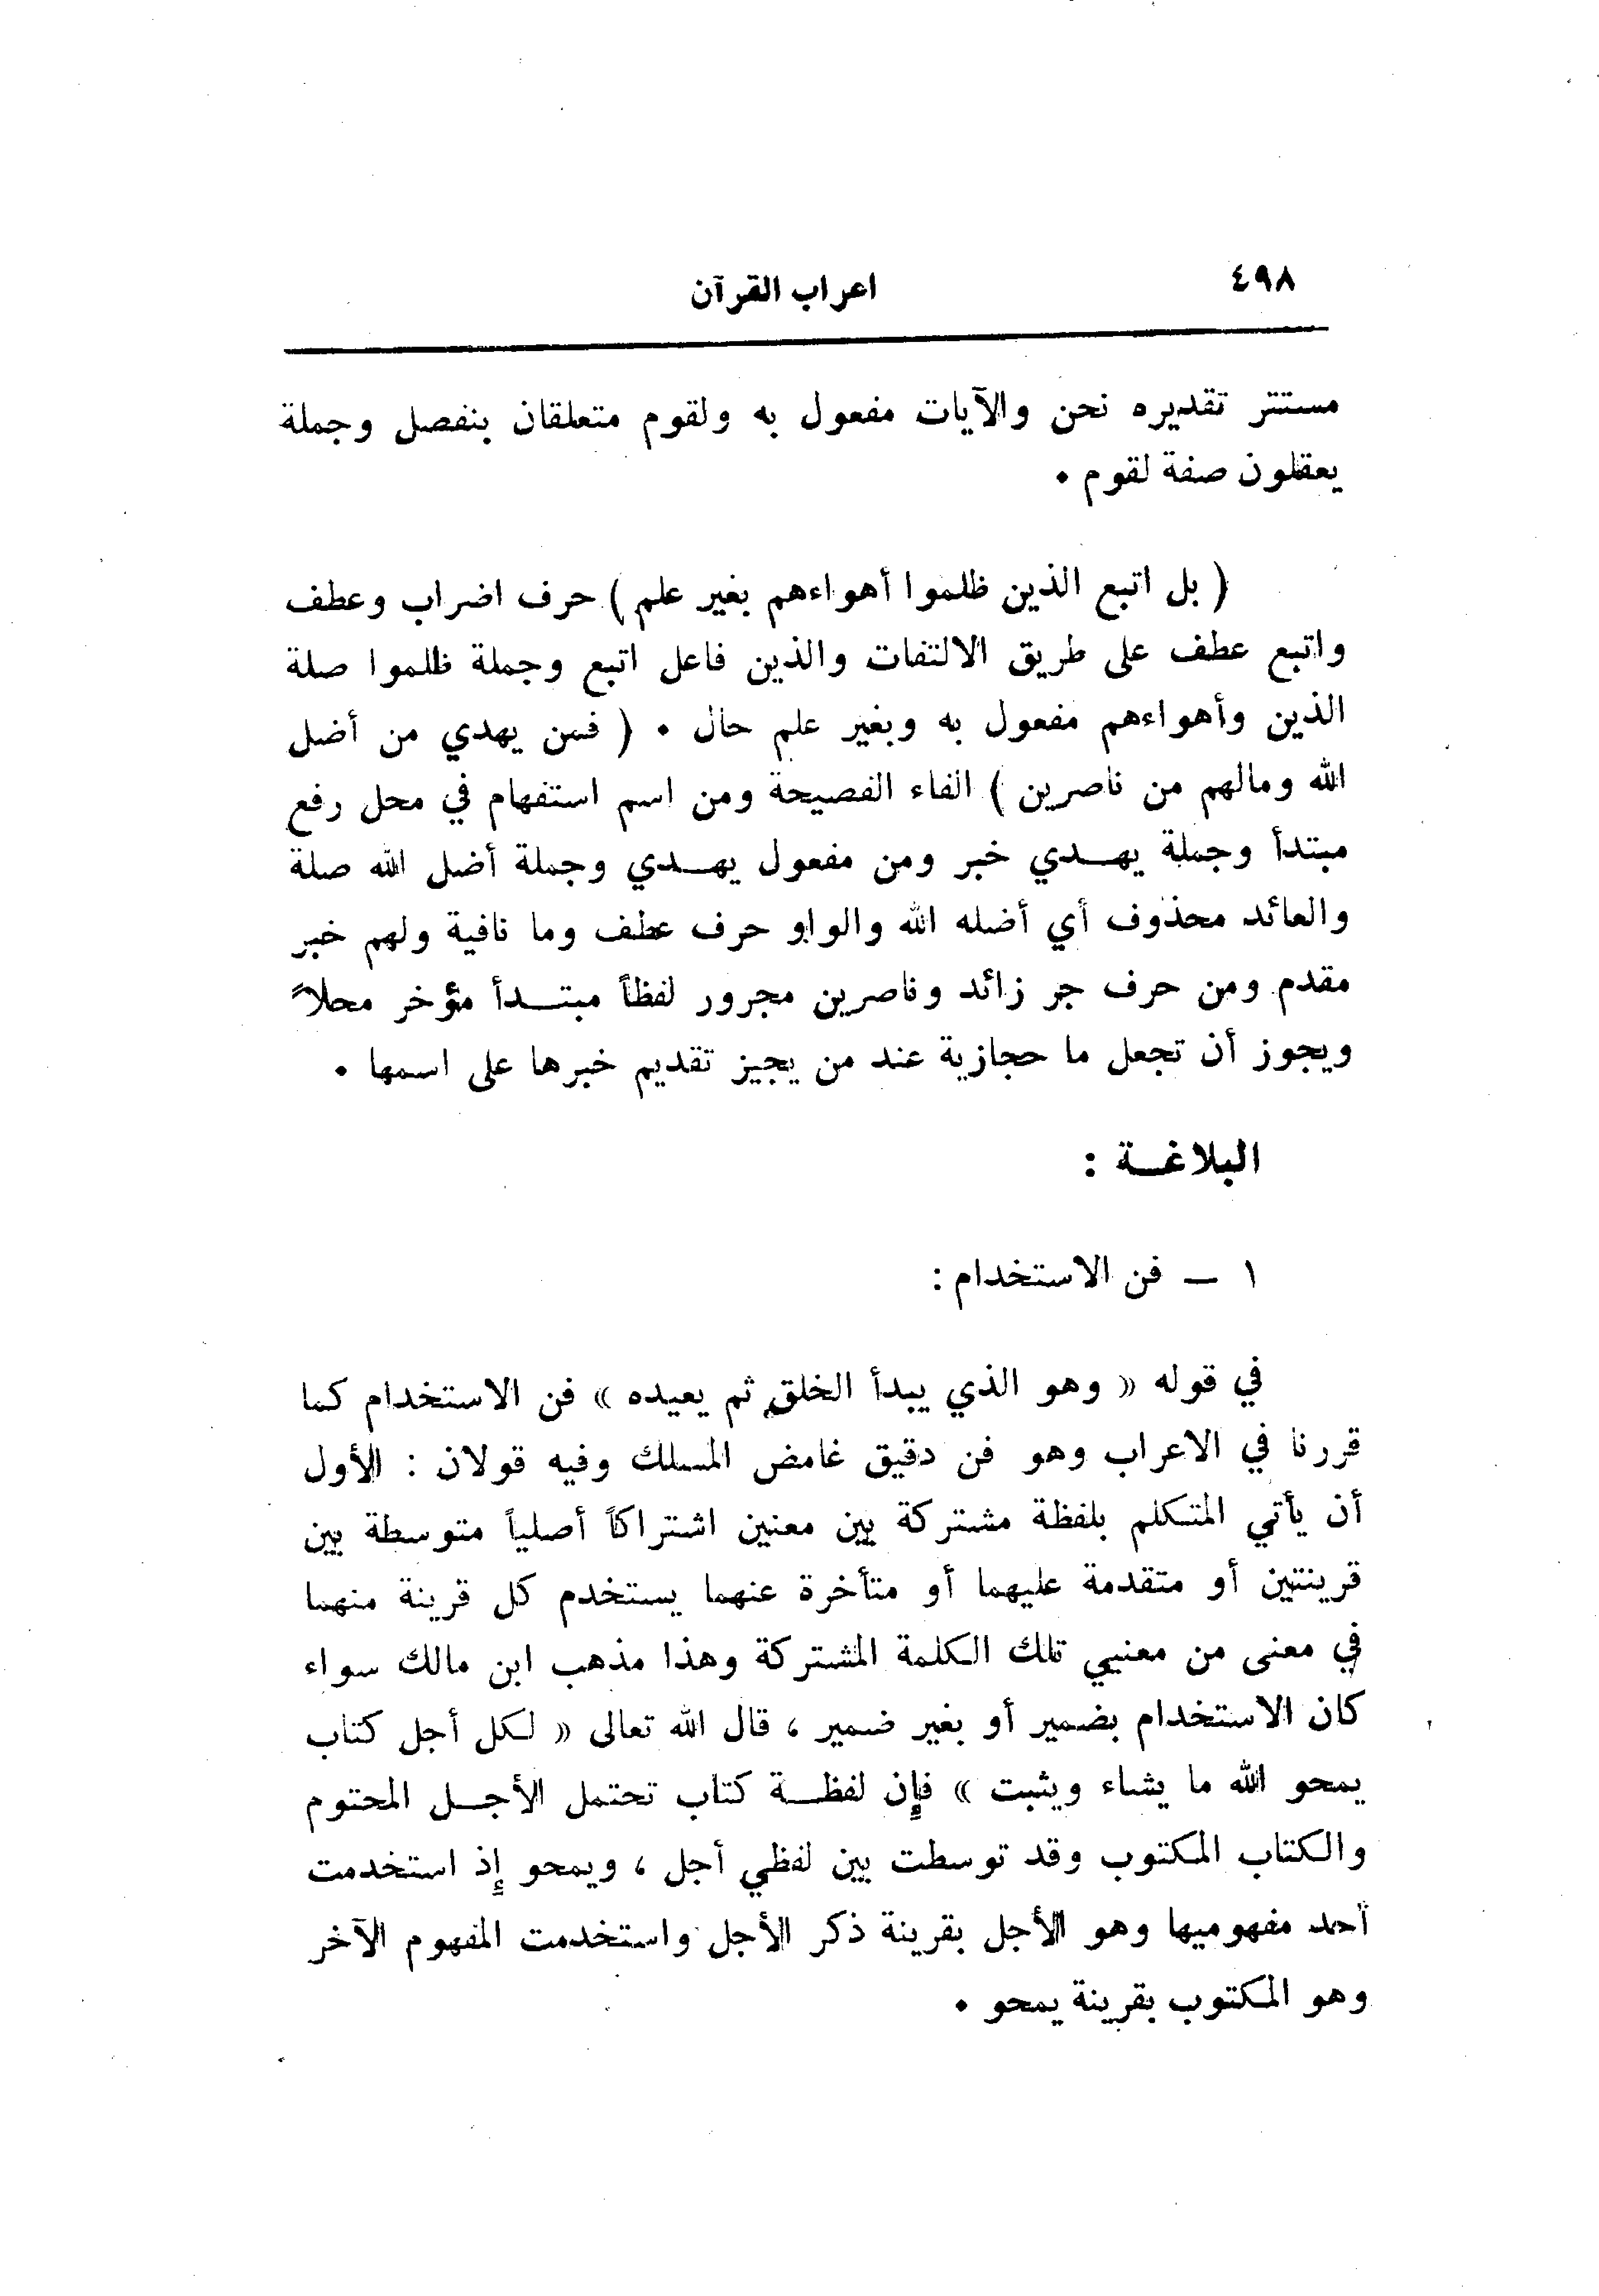 ٤٩٨
اعراب القرآن
مستتر تقديره نحن والآيات مفعول به ولقوم متعلقان بنفصل وجملة
يعقلون صفة لقوم .
( بل اتبع الذين ظلموا أهواءهم بغير علم ) حرف اضراب وعطف
واتبع عطف على طريق الالتفات والذين فاعل اتبع وجملة ظلموا صلة
الذين وأهواءهم مفعول به وبغير علم حال . ( فمن يهدي من أضل
الله ومالهم من ناصرين ) الفاء الفصيحة ومن اسم استفهام في محل رفع
مبتدأ وجملة يهدي خبر ومن مفعول يهدي وجملة أضل الله صلة
والعائد محذوف أي أضله الله والواو حرف عطف وما نافية ولهم خبر
مقدم ومن حرف جر زائد وناصرين مجرور لفظاً مبتدأ مؤخر محلاً
ويجوز أن تجعل ما حجازية عند من يجيز تقديم خبرها على اسمها .
البلاغة :
١ - فن الاستخدام :
في قوله « وهو الذي يبدأ الخلق ثم يعيده » فن الاستخدام كما
قررنا في الاعراب وهو فن دقيق غامض المسلك وفيه قولان : الأول
أن يأتي المتكلم بلفظة مشتركة بين معنين اشتراكاً أصلياً متوسطة بين
قرينتين أو متقدمة عليهما أو متأخرة عنهما يستخدم كل قرينة منهما
في معنى من معنيي تلك الكلمة المشتركة وهذا مذهب ابن مالك سواء
كان الاستخدام بضمير أو بغير ضمير ، قال الله تعالى « لكل أجل كتاب
يمحو الله ما يشاء ويثبت » فإن لفظة كتاب تحتمل الأجل المحتوم
والكتاب المكتوب وقد توسطت بين لفظي أجل ، ويمحو إذ استخدمت
أحد مفهوميها وهو الأجل بقرينة ذكر الأجل واستخدمت المفهوم الآخر
وهو المكتوب بقرينة يمحو .